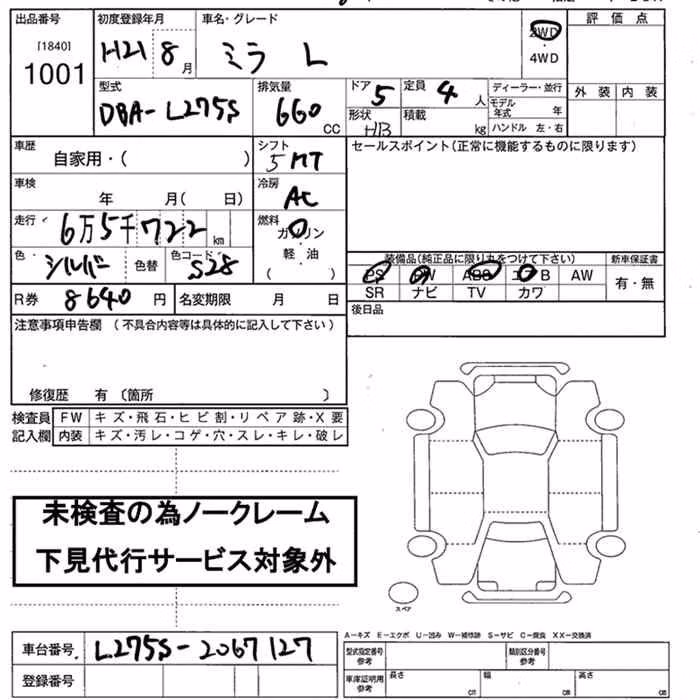 出品番号 初度登録年月 車名・グレード 評価点
[1840] 2WD
1001 H21 8月 ミラ L ・
4WD
型式 排気量 ドア 5 定員 4人 ディーラー・並行 外装 内装
DBA-L275S 660 CC 形状 HB 積載 kg モデル年式 年
ハンドル 左・右
車歴 自家用・( ) シフト 5MT セールスポイント(正常に機能するものに限ります)
車検 年 月( 日) 冷房 AC
走行 6万5千722km 燃料 ガソリン
・
軽油
( )
色 シルバー 色替 色コード S28 装備品(純正品に限り丸をつけて下さい) 新車保証書
PS PW ABS エアB AW 有・無
R券 8640円 名変期限 月 日 SR ナビ TV カワ
注意事項申告欄(不具合内容等は具体的に記入して下さい) 後日品
修復歴 有〔箇所 〕
検査員 FW キズ・飛石・ヒビ割・リペア跡・X要
記入欄 内装 キズ・汚レ・コゲ・穴・スレ・キレ・破レ
未検査の為ノークレーム
下見代行サービス対象外
スペア
A-キズ E-エクボ U-凹み W-補修跡 S-サビ C-腐食 XX-交換済
車台番号 L275S-2067127 型式指定番号 参考 類別区分番号 参考
登録番号 車庫証明用 参考 長さ cm 幅 cm 高さ cm